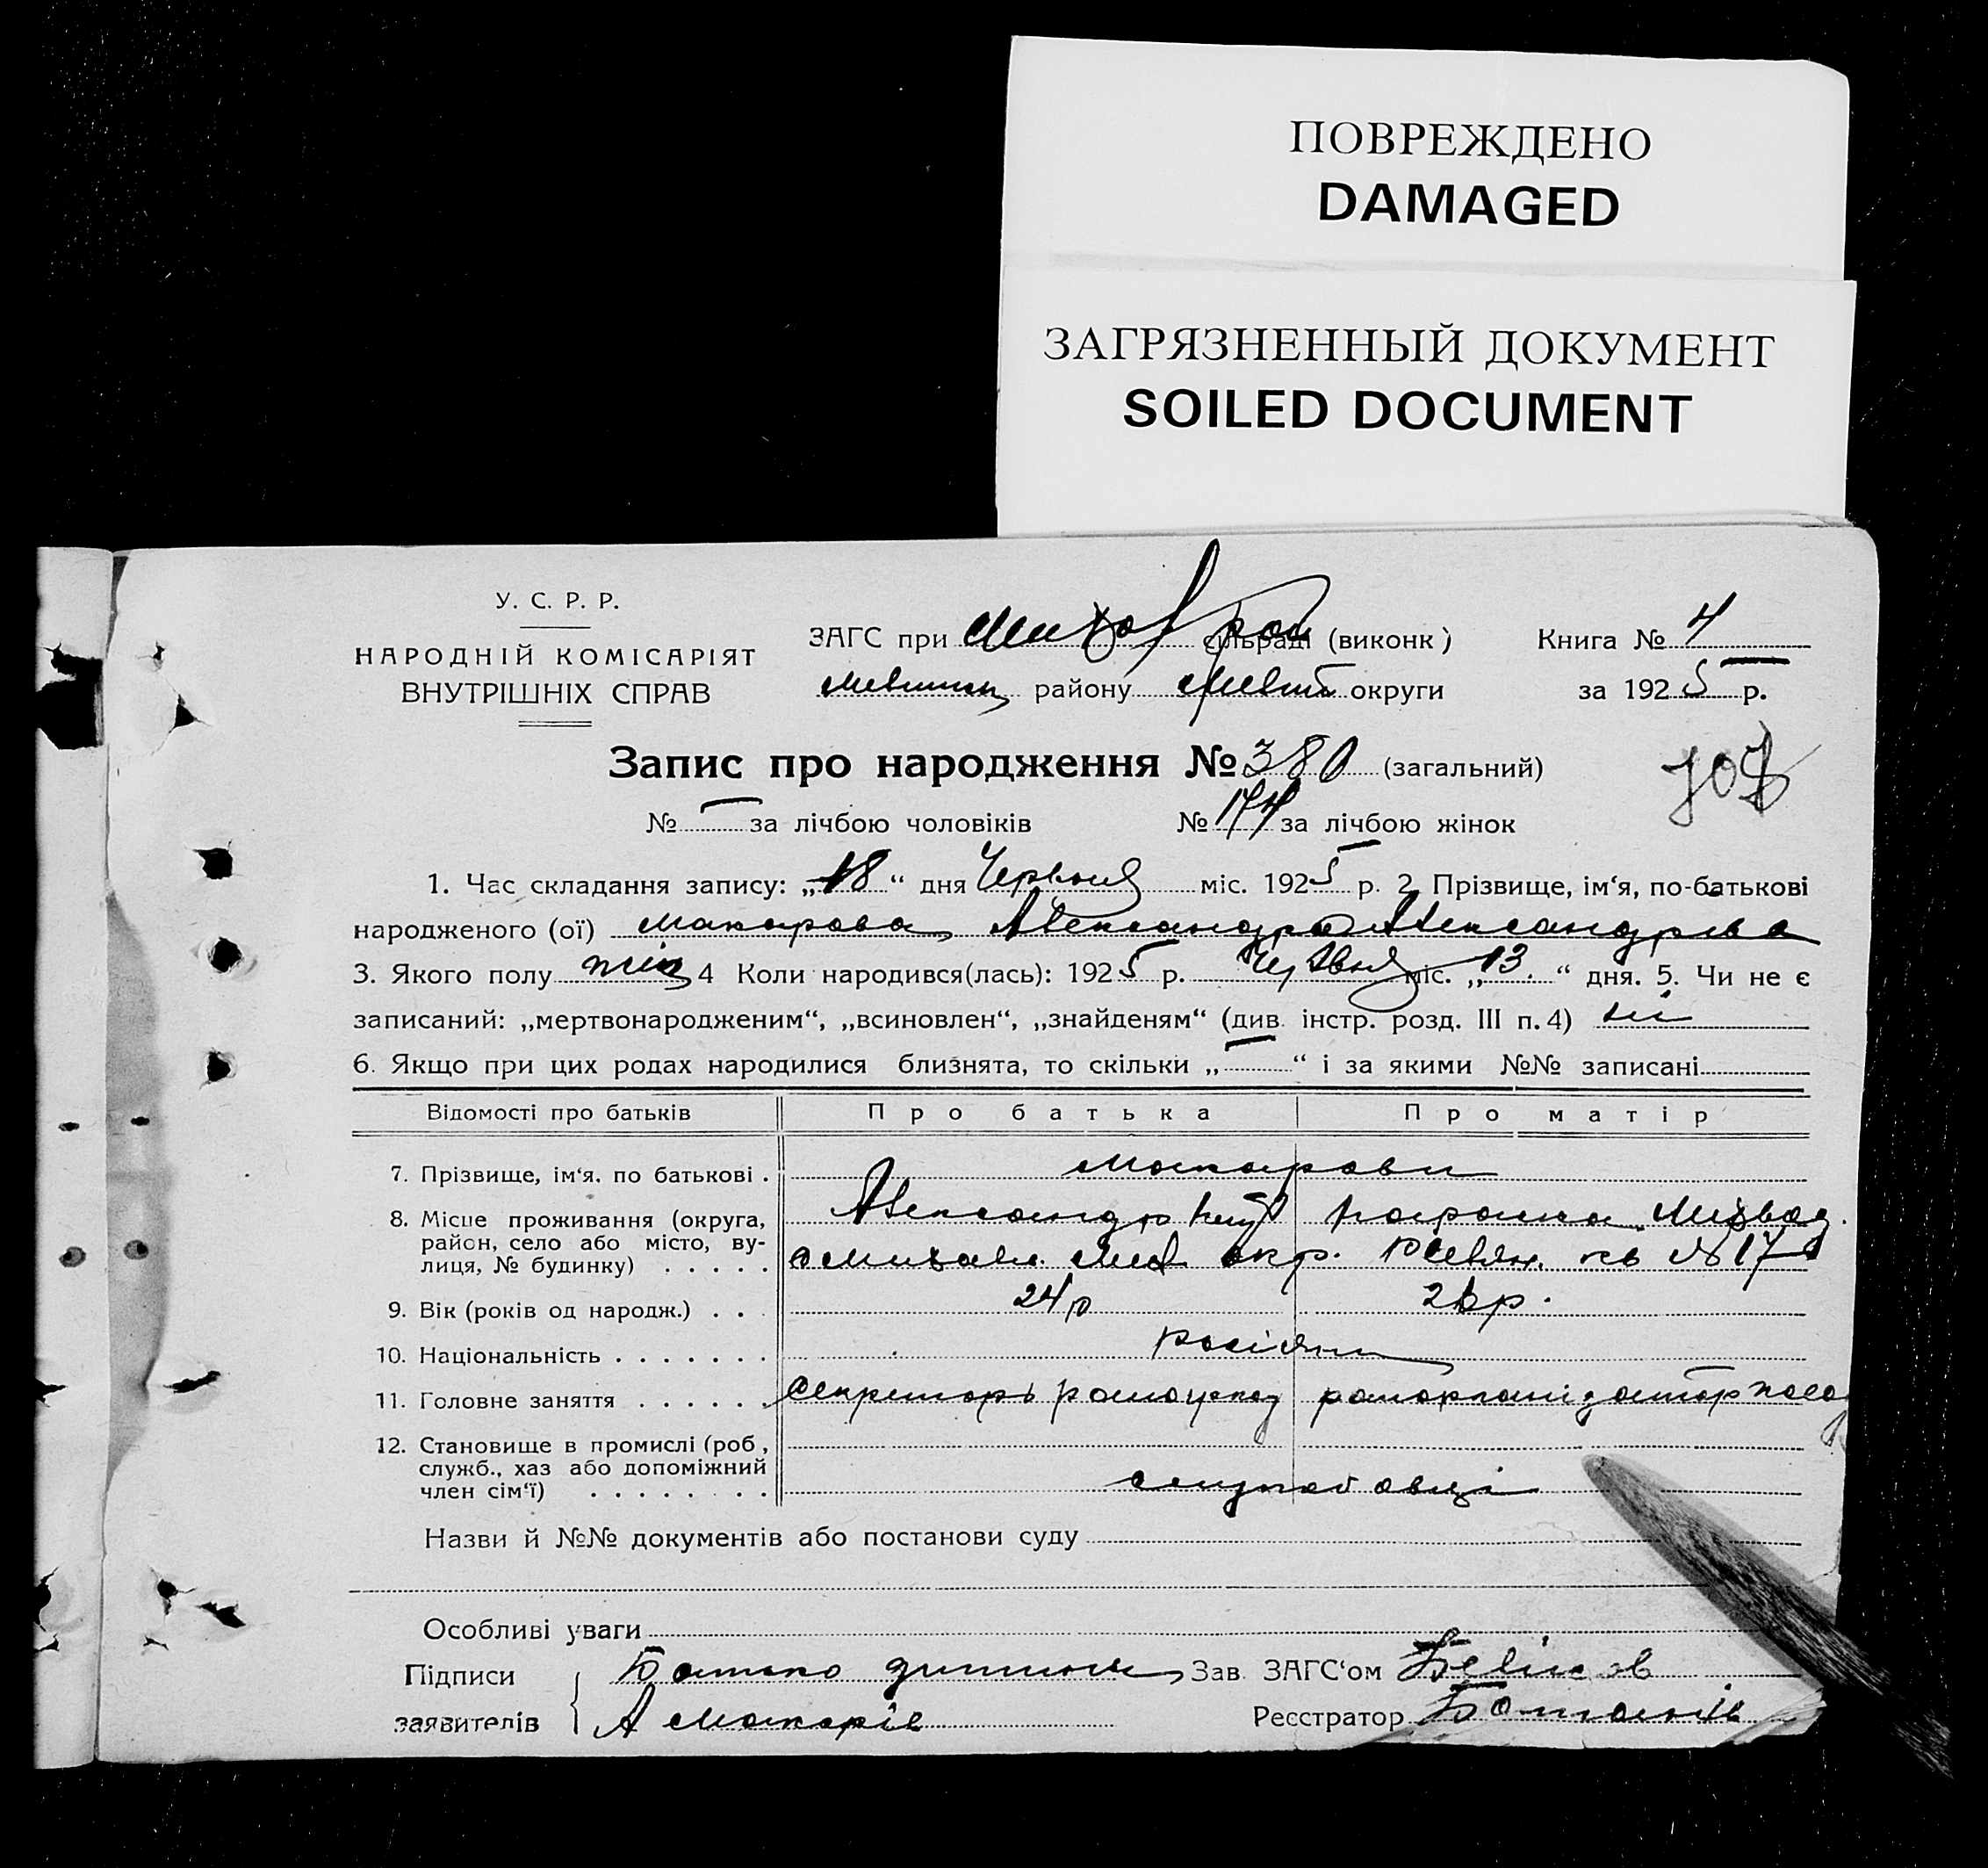 ПОВРЕЖДЕНО
DAMAGED
ЗАГРЯЗНЕННЫЙ ДОКУМЕНТ
SOILED DOCUMENT
У. С. Р. Р.
НАРОДНІЙ КОМІСАРІЯТ
ВНУТРІШНІХ СПРАВ
ЗАГС при сільраді (виконк) Книга № 4
району округи за 1925 р.
Запис про народження № 380 (загальний)
№ — за лічбою чоловіків № 174 за лічбою жінок
1. Час складання запису: „18“ дня Червня міс. 1925 р. 2. Прізвище, ім‘я, по-батькові
народженого (ої) Макарова Александра Александрівна
3. Якого полу жін 4 Коли народився(лась): 1925 р. Червня міс. „13.“ дня. 5. Чи не є
записаний: „мертвонародженим“, „всиновлен“, „знайденям“ (див. інстр. розд. III п. 4) ні
6. Якщо при цих родах народилися близнята, то скільки „—“ і за якими №№ записані
Відомості про батьків Про батька Про матір
7. Прізвище, ім‘я. по батькові . Макарови
8. Місце проживання (округа, Александр
район, село або місто, ву-
лиця, № будинку) . . . . . окр. № 17
9. Вік (років од народж.) . . . 24 р р.
10. Національність . . . . . . . Росіяни
11. Головне заняття . . . . . . Секретарь
12. Становище в промислі (роб.,
служб., хаз або допоміжний
член сім‘ї) . . . . . . . . службовці
Назви й №№ документів або постанови суду
Особливі уваги
Підписи Батько дитини Зав. ЗАГС‘ом
заявителів А Макарів Реєстратор